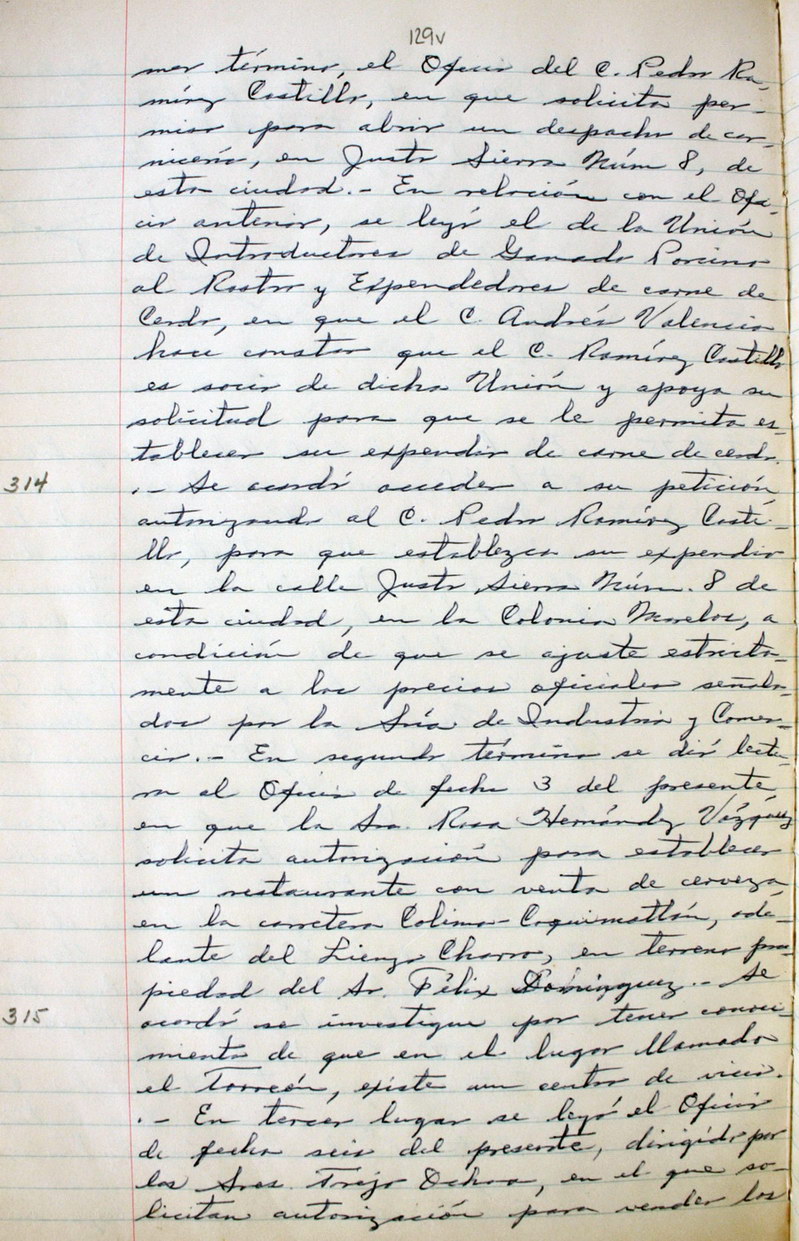 129v
mer término, el Oficio del C. Pedro Ra-
mírez Castillo, en que solicita per-
miso para abrir un despacho de car-
nicería, en Justo Sierra Núm 8, de
esta ciudad.- En relación con el Ofi-
cio anterior, se leyó el de la Unión
de Introductores de Ganado Porcino
al Rastro y Expendedores de carne de
Cerdo, en que el C. Andrés Valencia
hace constar que el C. Ramírez Castillo
es socio de dicha Unión y apoya su
solicitud para que se le permita es-
tablecer su expendio de carne de cerdo.
314
.- Se acordó acceder a su petición
autorizando al C. Pedro Ramírez Casti-
llo, para que establezca su expendio
en la calle Justo Sierra Núm. 8 de
esta ciudad, en la Colonia Morelos, a
condición de que se ajuste estricta-
mente a los precios oficiales señala-
dos por la Sría de Industria y Comer-
cio.- En segundo término se dió lectu-
ra al Oficio de fecha 3 del presente,
en que la Sra. Rosa Hernández Vázquez
solicita autorización para establecer
un restaurante con venta de cerveza
en la carretera Colima-Coquimatlán, ade-
lante del Lienzo Charro, en terreno pro-
piedad del Sr. Félix Domínguez.- Se
315
acordó se investigue por tener conoci-
miento de que en el lugar llamado
el Torreón, existe un centro de vicio.
.- En tercer lugar se leyó el Oficio
de fecha seis del presente, dirigido por
los Sres. Trejo Ochoa, en el que so-
licitan autorización para vender los